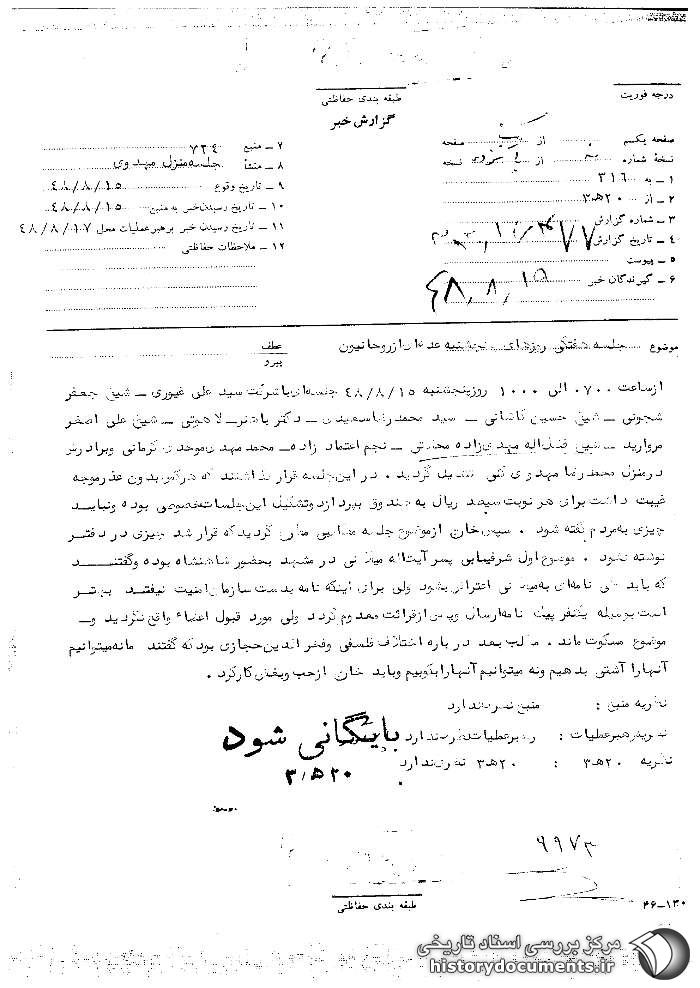 درجه فوریت
طبقه بندی حفاظتی
گزارش خبر
صفحه یکم از یک صفحه
نسخهٔ شماره از نسخه
۱ ـ به ۳۱۶
۲ ـ از ۲۰هـ۳
۳ ـ شماره گزارش
۴ ـ تاریخ گزارش
۵ ـ پیوست
۶ ـ گیرندگان خبر
۴۸٫۸٫۱۵
۷ ـ منبع ۷۲۴
۸ ـ منشأ جلسه منزل مهدوی
۹ ـ تاریخ وقوع ۴۸/۸/۱۵
۱۰ ـ تاریخ رسیدن خبر به منبع ۴۸/۸/۱۵
۱۱ ـ تاریخ رسیدن خبر برهبر عملیات محل ۴۸/۸/۱۷
۱۲ ـ ملاحظات حفاظتی
موضوع جلسه هفتگی روزهای پنجشنبه عده‌ای از روحانیون
عطف
پیرو
ازساعت ۰۷۰۰ الی ۱۰۰۰ روز پنجشنبه ۴۸/۸/۱۵ جلسه‌ای باشرکت سید علی غیوری ـ شیخ جعفر
شجونی ـ شیخ حسین کاشانی ـ سید محمدرضا سعیدی ـ دکتر باهنر ـ لاهوتی ـ شیخ علی اصغر
مروارید ـ شیخ فضل‌اله مهدی‌زاده محلاتی ـ نجم اعتماد زاده ـ محمد مهدی موحدی کرمانی وبرادرش
درمنزل محمدرضا مهدوی کنی تشکیل گردید . در این جلسه قرار گذاشتند که هرکس بدون عذرموجه
غیبت داشت برای هر نوبت سیصد ریال به صندوق بپردازد وتشکیل این جلسات خصوصی بوده ونباید
چیزی به‌مردم گفته شود . سپس خارج ازموضوع جلسه مطالبی مطرح گردیدکه قرار شد چیزی در دفتر
نوشته نشود . موضوع اول شرفیابی پسر آیت‌اله میلانی در مشهد بحضور شاهنشاه بوده وگفتند
که باید طی نامه‌ای به‌میلانی اعتراض بشود ولی برای اینکه نامه بدست سازمان امنیت نیفتد بهتر
است بوسیله یکنفر پیک نامه ارسال وپس ازقرائت معدوم گردد ولی مورد قبول اعضاء واقع نگردید و
موضوع مسکوت ماند . مطالب بعد در باره اختلاف فلسفی وفخرالدین حجازی بود که گفتند مانه‌میتوانیم
آنهارا آشتی بدهیم ونه میتوانیم آنهارا بکوبیم وباید خارج ازحب وبغض کارکرد .
نظریه منبع : منبع نظری ندارد
نظریه رهبرعملیات : رهبرعملیات نظری ندارد
نظریه ۲۰هـ۳ : ۲۰هـ۳ نظری ندارد
بایگانی شود
۲۰هـ۳
۹۹۷۳
طبقه بندی حفاظتی
۴۶ـ۱۳۰
مرکز بررسی اسناد تاریخی
historydocuments.ir